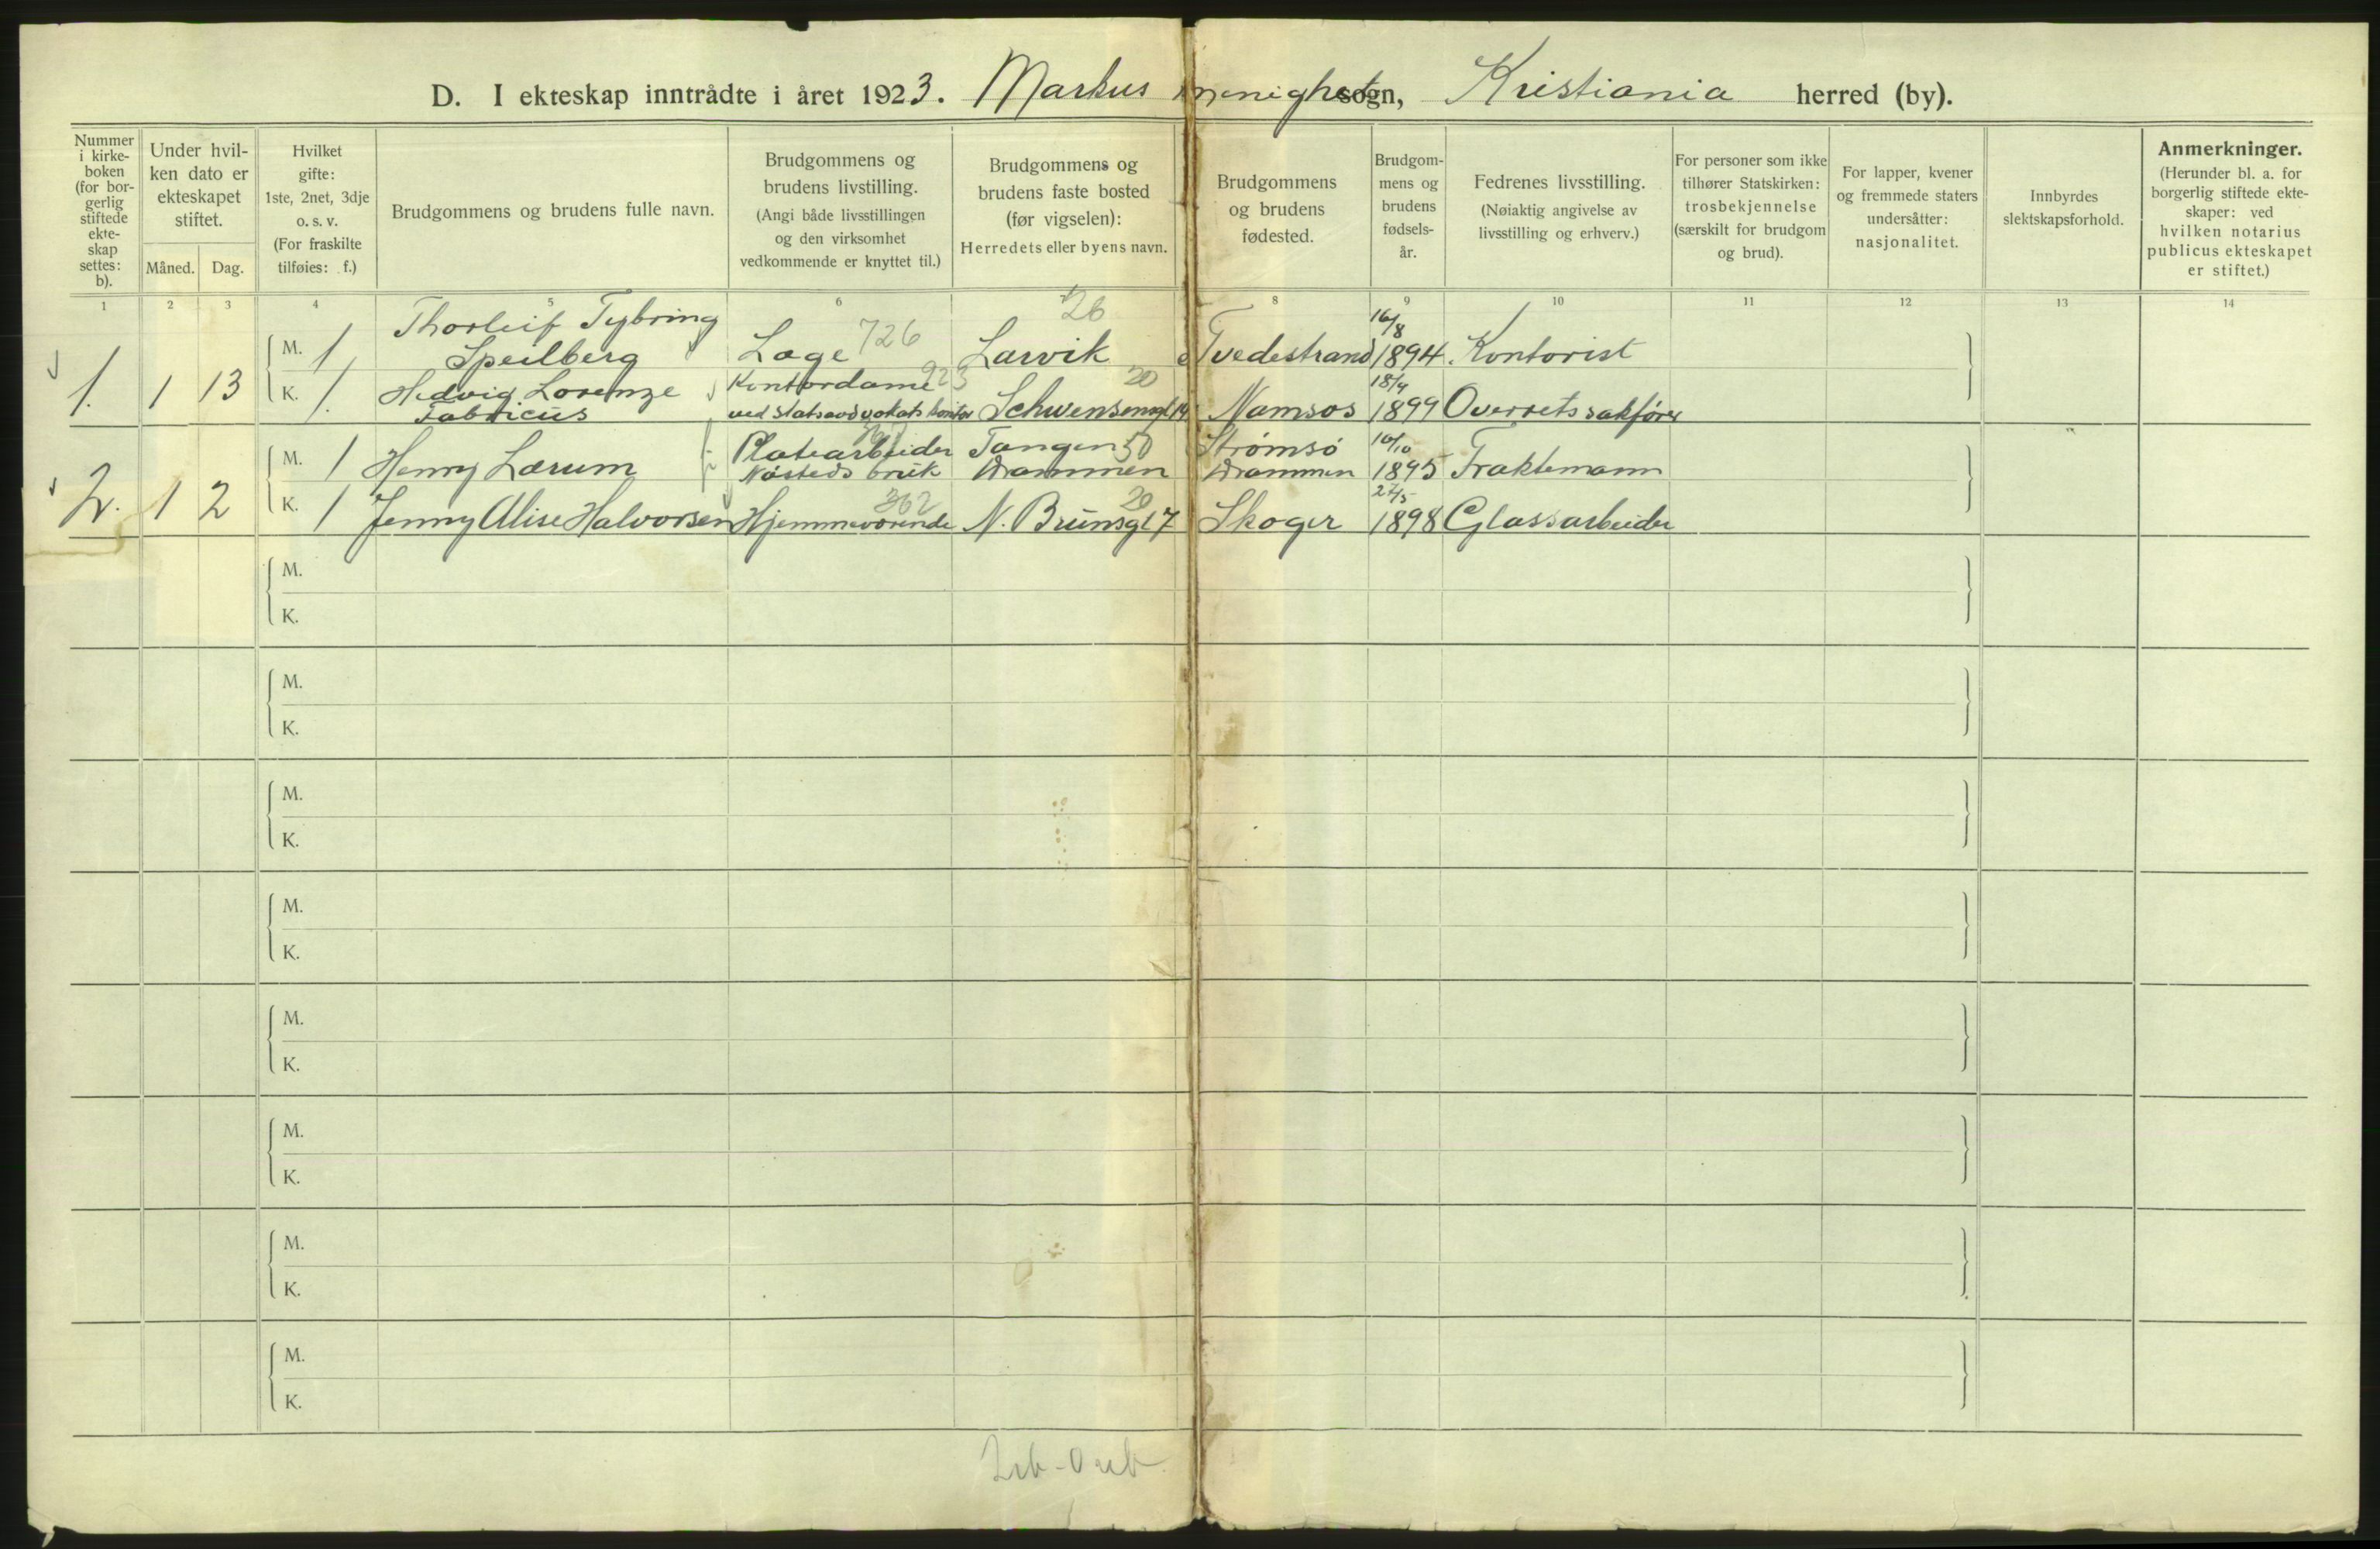 D. I ekteskap inntrådte i året 1923. Markus menighet sogn, Kristiania herred (by).
Nummer i kirke- boken (for bor- gerlig stiftede ekte- skap settes: b).
Under hvil- ken dato er ekteskapet stiftet.
Måned. Dag.
Hvilket gifte: 1ste, 2net, 3dje o. s. v. (For fraskilte tilføies: f.)
Brudgommens og brudens fulle navn.
Brudgommens og brudens livstilling. (Angi både livsstillingen og den virksomhet vedkommende er knyttet til.)
Brudgommens og brudens faste bosted (før vigselen): Herredets eller byens navn.
Brudgommens og brudens fødested.
Brudgom- mens og brudens fødsels- år.
Fedrenes livsstilling. (Nøiaktig angivelse av livsstilling og erhverv.)
For personer som ikke tilhører Statskirken: trosbekjennelse (særskilt for brudgom og brud).
For lapper, kvener og fremmede staters undersåtter: nasjonalitet.
Innbyrdes slektskapsforhold.
Anmerkninger. (Herunder bl. a. for borgerlig stiftede ekte- skaper: ved hvilken notarius publicus ekteskapet er stiftet.)
1 2 3 4 5 6 8 9 10 11 12 13 14
1. 1 13
M. 1, Thorleif Tybring Speilberg Læge 726 Larvik 26 Tvedestrand 16/8 1894. Kontorist
K. 1. Hedvig Lorenze Fabricius Kontordame 923 ved statsadvokats kontor Schwensensgt 14 20 Namsos 18/4 1899 Overretssakfører
2. 1 2
M. 1 Henry Lærum Platearbeider Nøsteds bruk Tangen 50 Drammen Strømsø Drammen 16/10 1895 Fraktemann
K. 1 Jenny Alise Halvorsen Hjemmeværende 362 N. Brunsgt 7 20 Skoger 27/5 1898 Glassarbeider
M.
K.
M.
K.
M.
K.
M.
K.
M.
K.
M.
K.
M.
K.
M.
K.